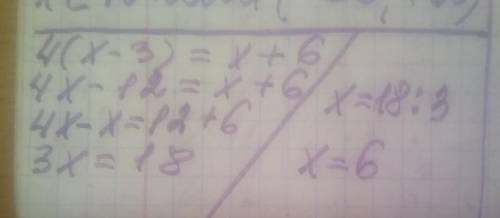 4(x-3) = x+6
4x-12 = x+6
4x-x=12+6
3x=18
x=18:3
x=6